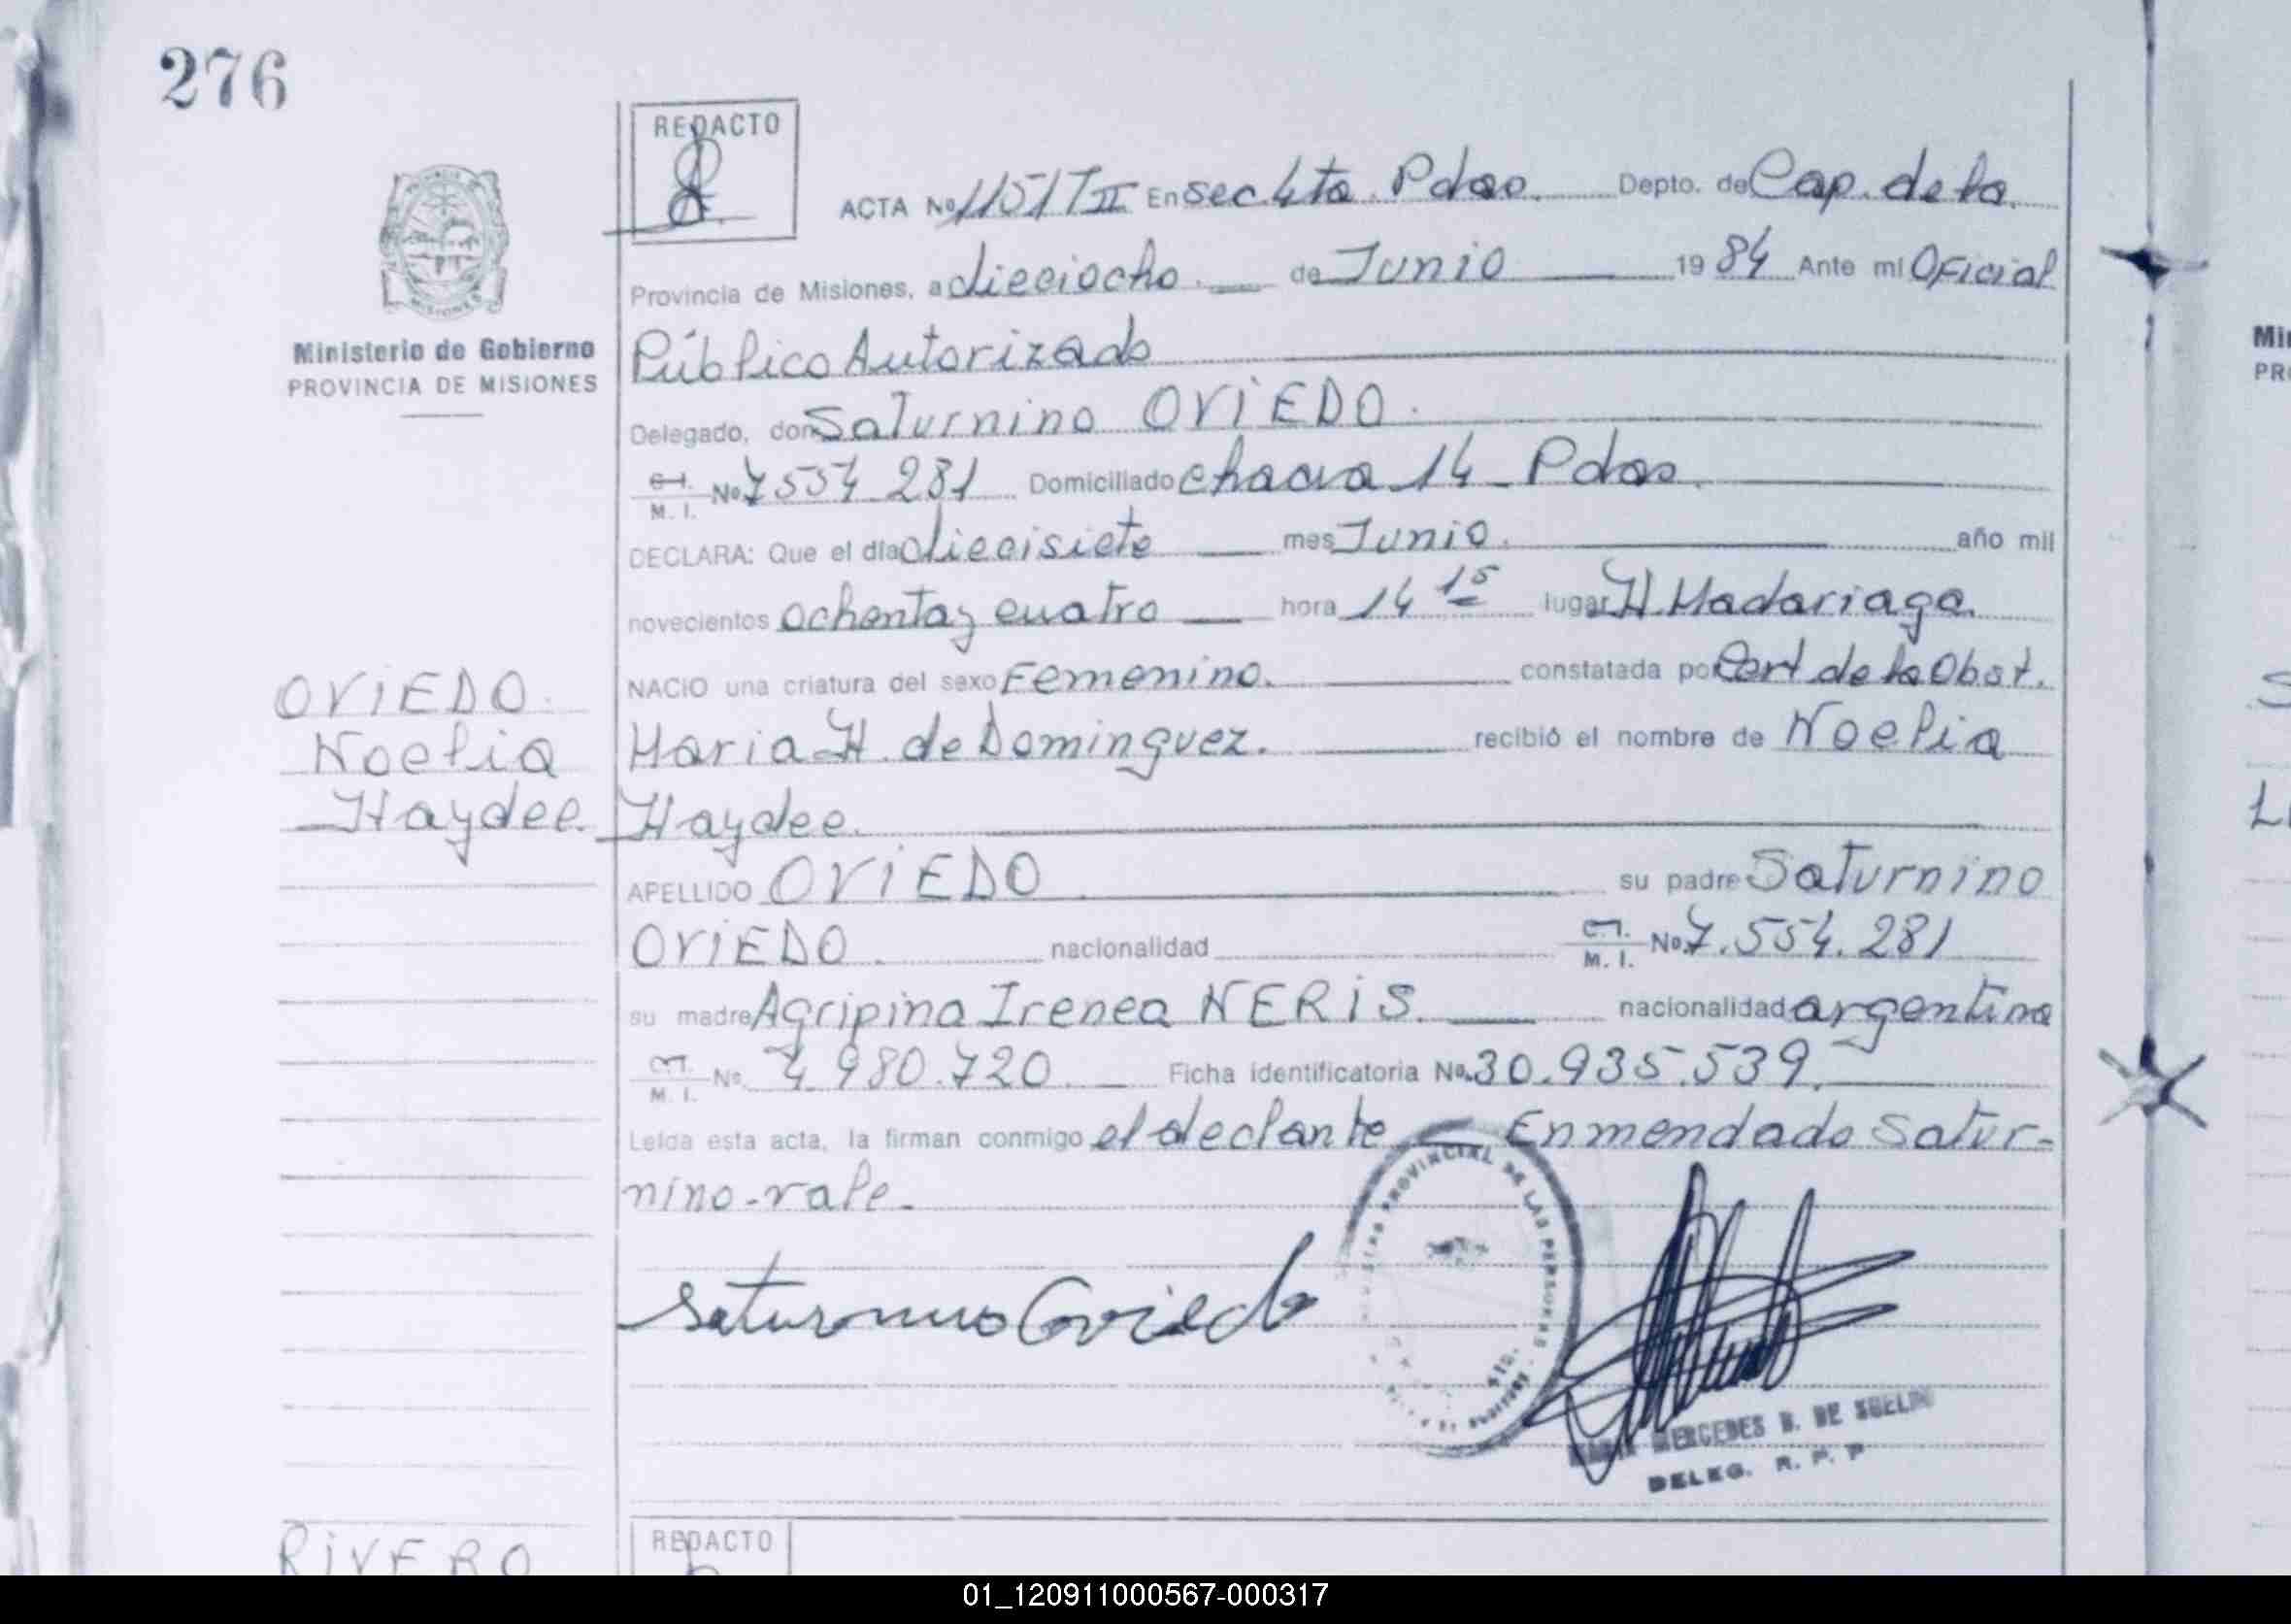 276
REDACTO
ACTA Nº 1151 T II En sec 4ta. Pdas. Depto. de Cap. de la
Provincia de Misiones, a dieciocho. de Junio 19 84 Ante mi Oficial
Ministerio de Gobierno
PROVINCIA DE MISIONES
Público Autorizado
Delegado, don Saturnino OViEDO.
C.I. M. I. Nº 7554 281 Domiciliado chacra 14 - Pdas.
DECLARA: Que el día diecisiete mes Junio. año mil
novecientos ochenta y cuatro hora 14 15 lugar H. Madariaga.
NACIO una criatura del sexo Femenino. constatada por Cert de la Obst.
Maria H. de Dominguez. recibió el nombre de Noelia
Haydee.
OViEDO.
Noelia
Haydee.
APELLIDO OViEDO su padre Saturnino
OViEDO. nacionalidad C.I. M. I. No. 7.554.281
su madre Agripina Irenea NERiS. nacionalidad argentina
C.I. M. I. Nº 4 980.720. Ficha identificatoria Nº 30.935.539.
Leída esta acta, la firman conmigo el declante Enmendado Satur-
nino-vale-
Saturnino Oviedo
PROVINCIAL DE LAS PERSONAS
MERCEDES B. DE
DELEG. R. P. P
RiVERO
REDACTO
Mi
PR
S
L
01_120911000567-000317